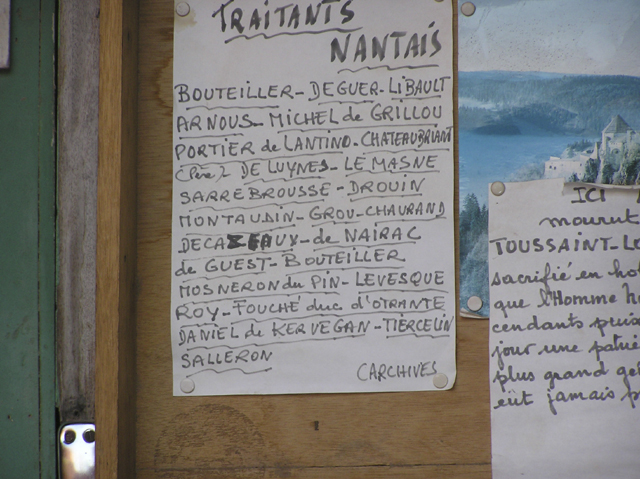 TRAITANTS
NANTAIS
BOUTEILLER - DEGUER - LIBAULT
ARNOUS - MICHEL de GRILLOU
PORTIER de LANTINO - CHATEAUBRIANT
(Père) DE LUYNES - LE MASNE
SARREBROUSSE - DROUIN
MONTAUDIN - GROU - CHAURAND
DECAZEAUX - de NAIRAC
de GUEST - BOUTEILLER
MOSNERON du PIN - LEVESQUE
ROY - FOUCHÉ duc d'OTRANTE
DANIEL de KERVEGAN - TIERCELIN
SALLERON
(ARCHIVES)
ICI
mourut
TOUSSAINT-L
sacrifié en ho
que l'Homme
cendants puis
jour une patrie
plus grand ge
eût jamais p